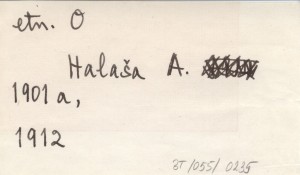 etn. O
Halaša A.
1901 a,
1912
BT/055/ 0235